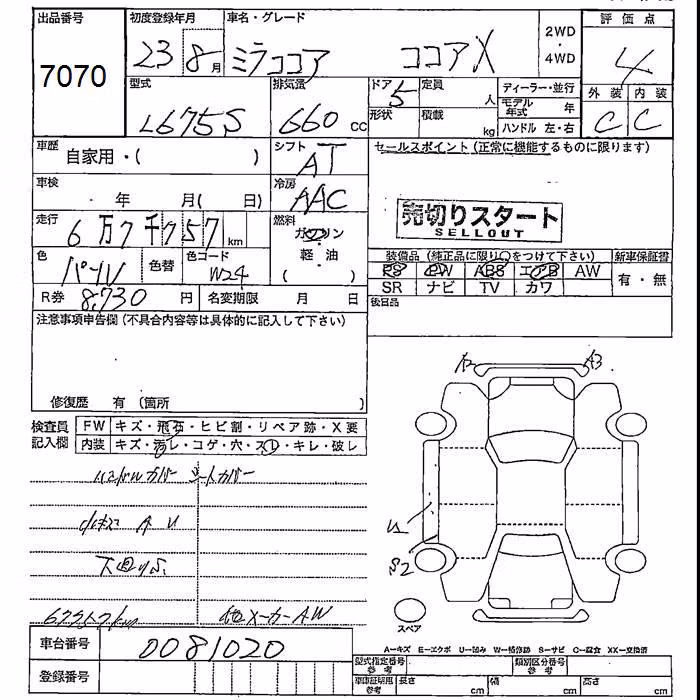 出品番号
7070
初度登録年月
23 8月
車名・グレード
ミラココア ココアX
2WD
・
4WD
評価点
4
型式
L675S
排気量
660 cc
ドア
5
定員
人
形状
積載
kg
ディーラー・並行
モデル年式 年
ハンドル 左・右
外装 内装
C C
車歴
自家用・( )
シフト
AT
セールスポイント (正常に機能するものに限ります)
車検
年 月( 日)
冷房
AAC
売切りスタート
SELLOUT
走行
6万7千757km
燃料
ガソリン
・
軽・油
( )
色
パール
色替
色コード
W24
装備品 (純正品に限り○をつけて下さい)
新車保証書
PS PW ABS エアB AW
有・無
SR ナビ TV カワ
R券 8,730 円
名変期限 月 日
後日品
注意事項申告欄 (不具合内容等は具体的に記入して下さい)
修復歴 有 (箇所 )
検査員
記入欄
FW キズ・飛石・ヒビ割・リペア跡・X要
内装 キズ・汚レ・コゲ・穴・スレ・キレ・破レ
A2
A3
ハンドルカバー シートカバー
小キズ A U
U1
S2
下廻りS
67757km
他メーカーAW
スペア
A−キズ E−エクボ U−凹み W−補修跡 S−サビ C−腐食 XX−交換済
車台番号
0081020
登録番号
型式指定番号
参考
類別区分番号
参考
車庫証明用
参考
長さ cm
幅 cm
高さ cm